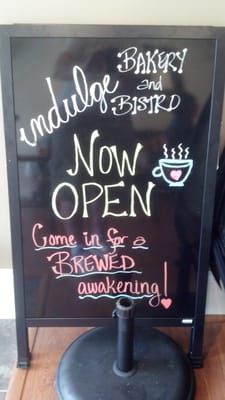 indulge BAKERY
and
BISTRO
NOW
OPEN
Come in for a
BREWED
awakening!